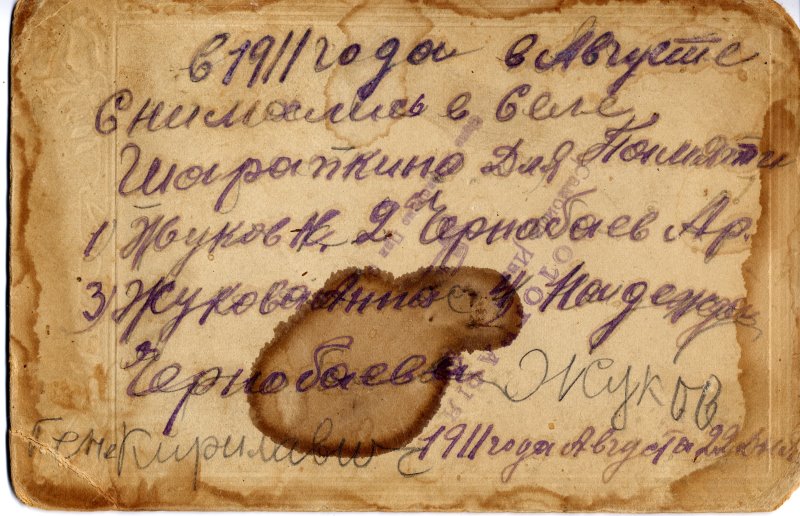 в 1911 года в Августе
Снимались в Селе
Шарапкино для Памяти
1) Жуков К. 2й Чернобаев Ар.
3) Жукова Анна 4 Надежда
Чернобаева Жуков
Кирилавич 1911 года Августа 22 дня
ФОТО